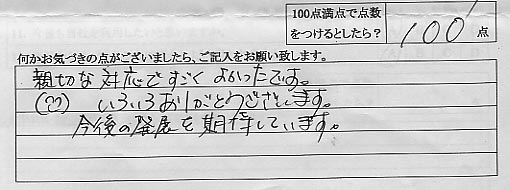 100点満点で点数
をつけるとしたら？ 100 点
何かお気づきの点がございましたら、ご記入をお願い致します。
親切な対応ですごくよかったです。
いろいろありがとうございます。
今後の発展を期待しています。